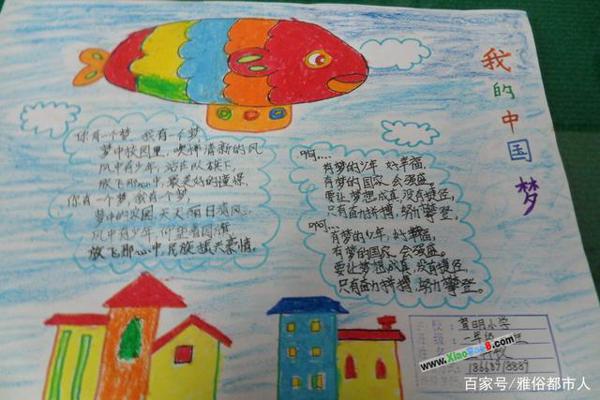 我的中国梦
你有一个梦,我有一个梦,
梦中校园里,吹佛清新的风
风中有少年,站在队旗下,
放飞那心中,最美好的憧憬。
你有一个梦,我有个梦,
梦中的家园,天天丽日清风。
风中有少年,仰望着国旗
放飞那心中,民族振兴豪情。
啊....
有梦的少年,好幸福,
有梦的国家,会强盛。
要让梦想成真,没有捷径,
只有奋力拼搏,努力攀登。
啊....
有梦的少年,好幸福,
有梦的国家,会强盛。
要让梦想成真,没有捷径,
只有奋力拼搏,努力攀登。
小学
百家号/雅俗都市人